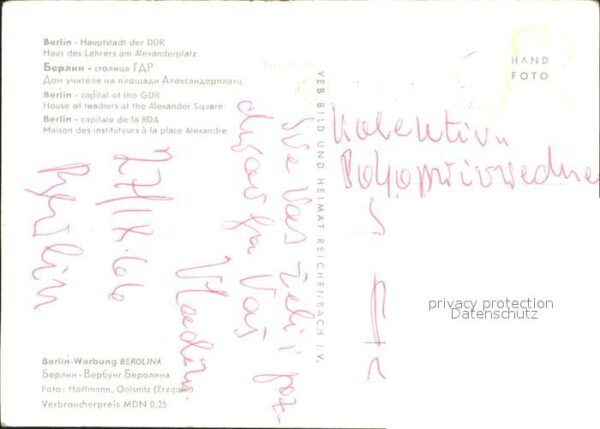 Berlin - Hauptstadt der DDR
Haus des Lehrers am Alexanderplatz
Берлин - столица ГДР
Дом учителя на площади Александерплатц
Berlin - capital of the GDR
House of teachers at the Alexander Square
Berlin - capitale de la RDA
Maison des instituteurs à la place Alexandre
HAND
FOTO
VEB BILD UND HEIMAT REICHENBACH i. V.
Kolektivu
Poljoprivredne
Sve Vas želi i poz-
Vaš
Vladim.
27/IX.66
Berlin
privacy protection
Datenschutz
Berlin-Werbung BEROLINA
Берлин - Вербунг Беролина
Foto: Hoffmann, Oelsnitz (Erzgeb.)
Verbraucherpreis MDN 0,25